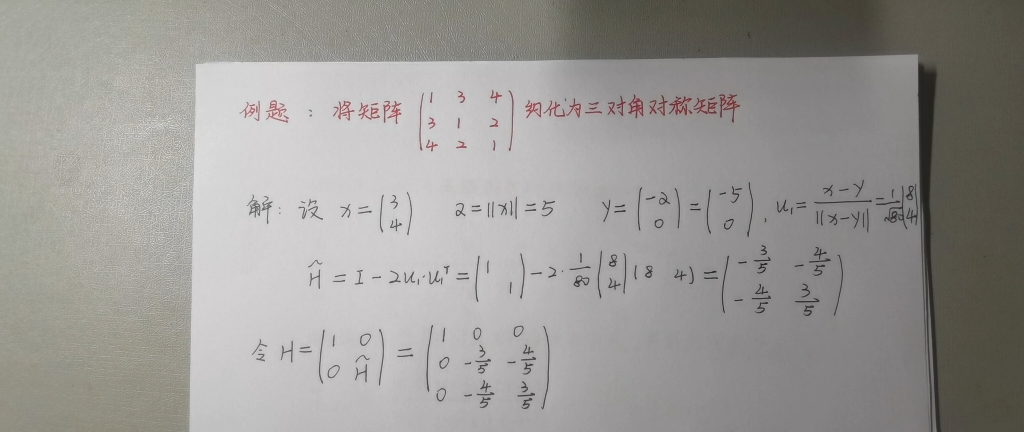 例题：将矩阵 (1 3 4; 3 1 2; 4 2 1) 约化为三对角对称矩阵
解：设 x=(3; 4) 2=||x||=5 y=(-2; 0)=(-5; 0), u₁=(x-y)/||x-y||=1/√80(8; 4)
H̃=I-2u₁·u₁ᵀ=(1 ; 1)-2·1/80(8; 4)(8 4)=(-3/5 -4/5; -4/5 3/5)
令 H=(1 0; 0 H̃)=(1 0 0; 0 -3/5 -4/5; 0 -4/5 3/5)